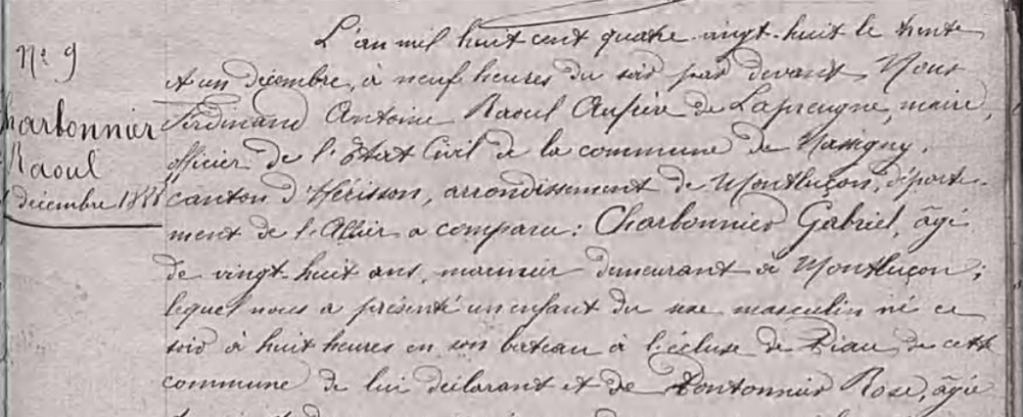 N° 9
Charbonnier
Raoul
décembre 1888
L'an mil huit cent quatre-vingt-huit le trente
et un décembre, à neuf heures du soir par devant Nous
Ferdinand Antoine Raoul Aupère de Lapreugne, maire,
officier de l'Etat Civil de la commune de Nassigny,
canton d'Hérisson, arrondissement de Montluçon, départe-
ment de l'Allier a comparu : Charbonnier Gabriel, âgé
de vingt-huit ans, marinier demeurant à Montluçon ;
lequel nous a présenté un enfant du sexe masculin né ce
soir à huit heures en son bateau à l'écluse de Riau de cette
commune de lui déclarant et de Rose, âgée